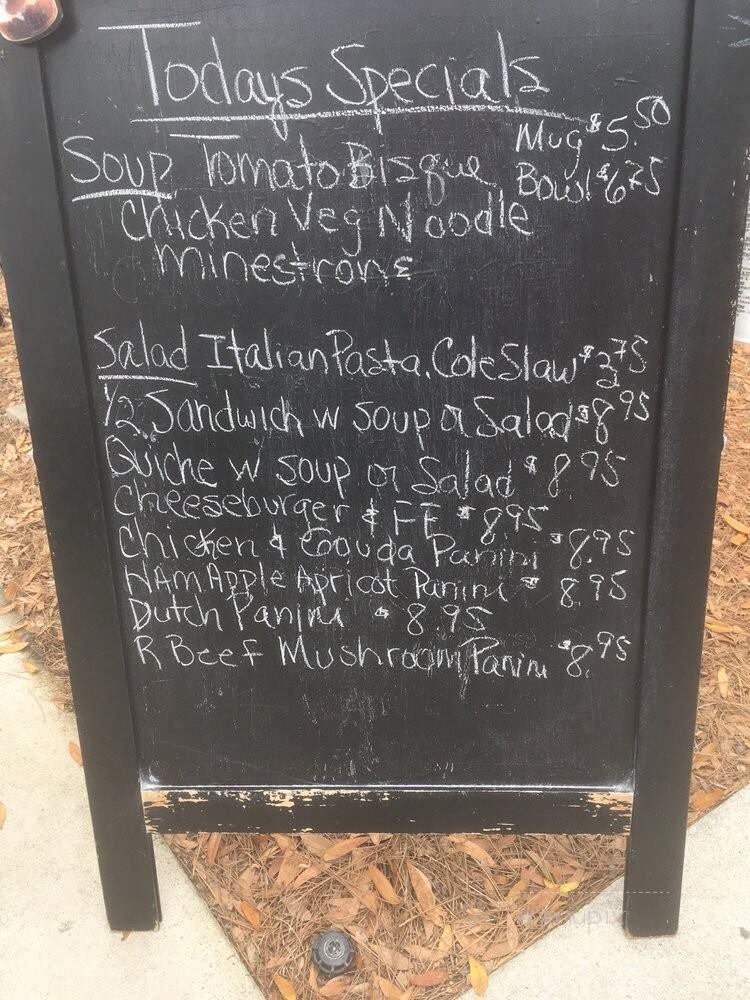 Todays Specials
Soup Tomato Bisque Mug $5.50
Bowl $6.75
Chicken Veg Noodle
minestrone
Salad Italian Pasta. Cole Slaw $3.75
1/2 Sandwich w soup or Salad $8.95
Quiche w soup or Salad $8.95
Cheeseburger & FF $8.95
Chicken & Gouda Panini $8.95
HAm Apple Apricot Panini $8.95
Dutch Panini $8.95
R Beef Mushroom Panini $8.95